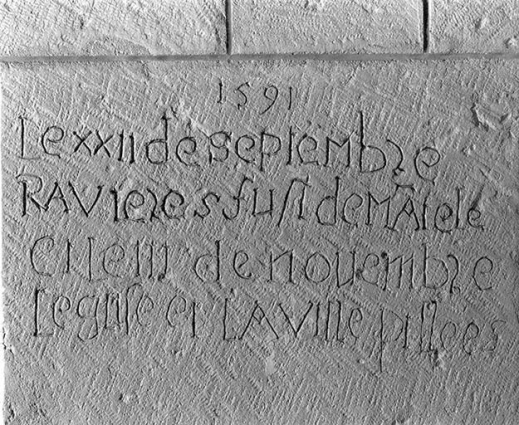 1591
Le xxii de septembre
RAVieres fuſt demÃtele
de nouembre
Legliſe et LA ville pillees